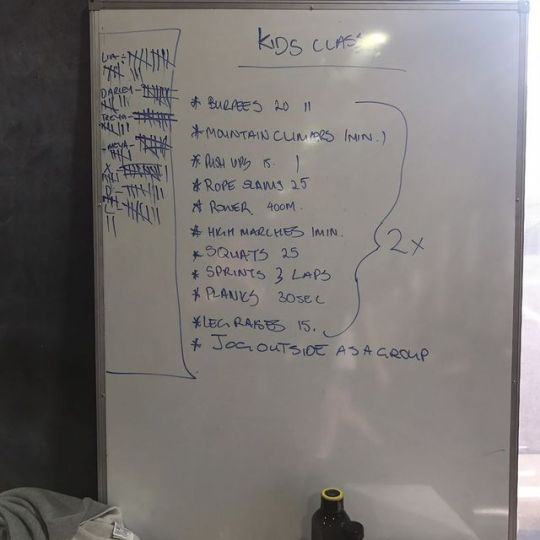 KIDS CLASS
LIA -
DARLEY -
* BURPEES 20 11
* MOUNTAIN CLIMBERS 1MIN. )
* PUSH UPS 15. )
* ROPE SLAMS 25
* POWER 400M.
* HIGH MARCHES 1MIN.
* SQUATS 25
* SPRINTS 3 LAPS
* PLANKS 30SEC
* LEG RAISES 15.
* JOG OUTSIDE AS A GROUP
2x